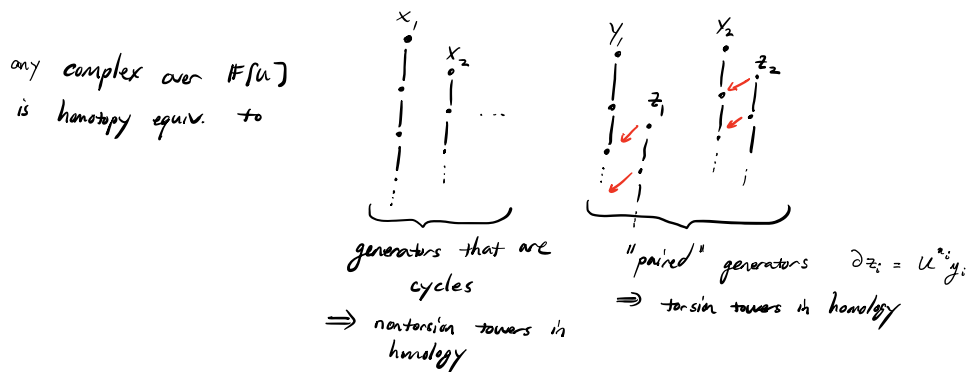 any complex over 𝔽[U]
is homotopy equiv. to
x₁
x₂
...
y₁
z₁
y₂
z₂
generators that are
cycles
⟹ nontorsion towers in
homology
"paired" generators ∂zᵢ = U^{nᵢ}yᵢ
⟹ torsion towers in homology